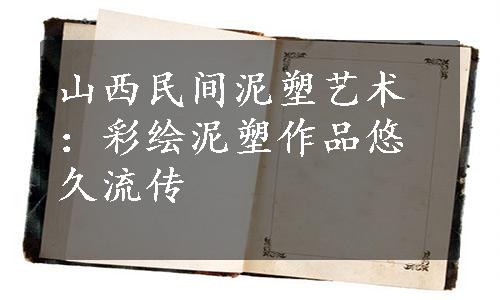 山西民间泥塑艺术
：彩绘泥塑作品悠
久流传